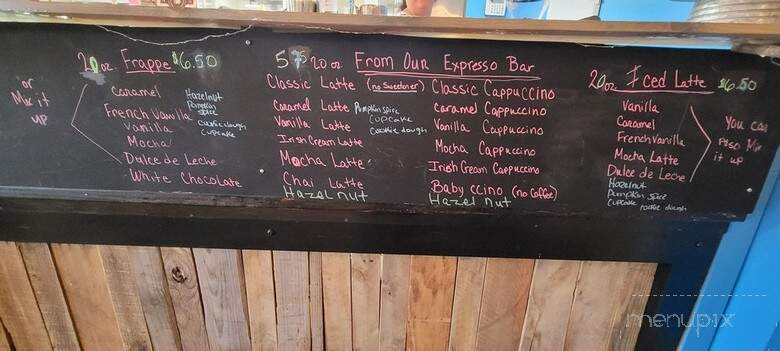 20oz. Frappe $6.50
or
Mix it
up
caramel
French Vanilla
Vanilla
Mocha
Dulce de Leche
White Chocolate
Hazelnut
Pumpkin
spice
cookie dough
cupcake
20 oz From Our Expresso Bar
Classic Latte (no Sweetener)
Caramel Latte
Vanilla Latte
Irish Cream Latte
Mocha Latte
Chai Latte
Hazel nut
Pumpkin Spice
cupcake
cookie dough
Classic Cappuccino
caramel Cappuccino
Vanilla Cappuccino
Mocha Cappuccino
Irish Cream Cappuccino
Baby ccino (no Coffee)
Hazel nut
20oz Iced Latte $6.50
Vanilla
Caramel
French Vanilla
Mocha Latte
Dulce de Leche
Hazelnut
Pumpkin Spice
Cupcake
cookie dough
You can
Also Mix
it up
menupix